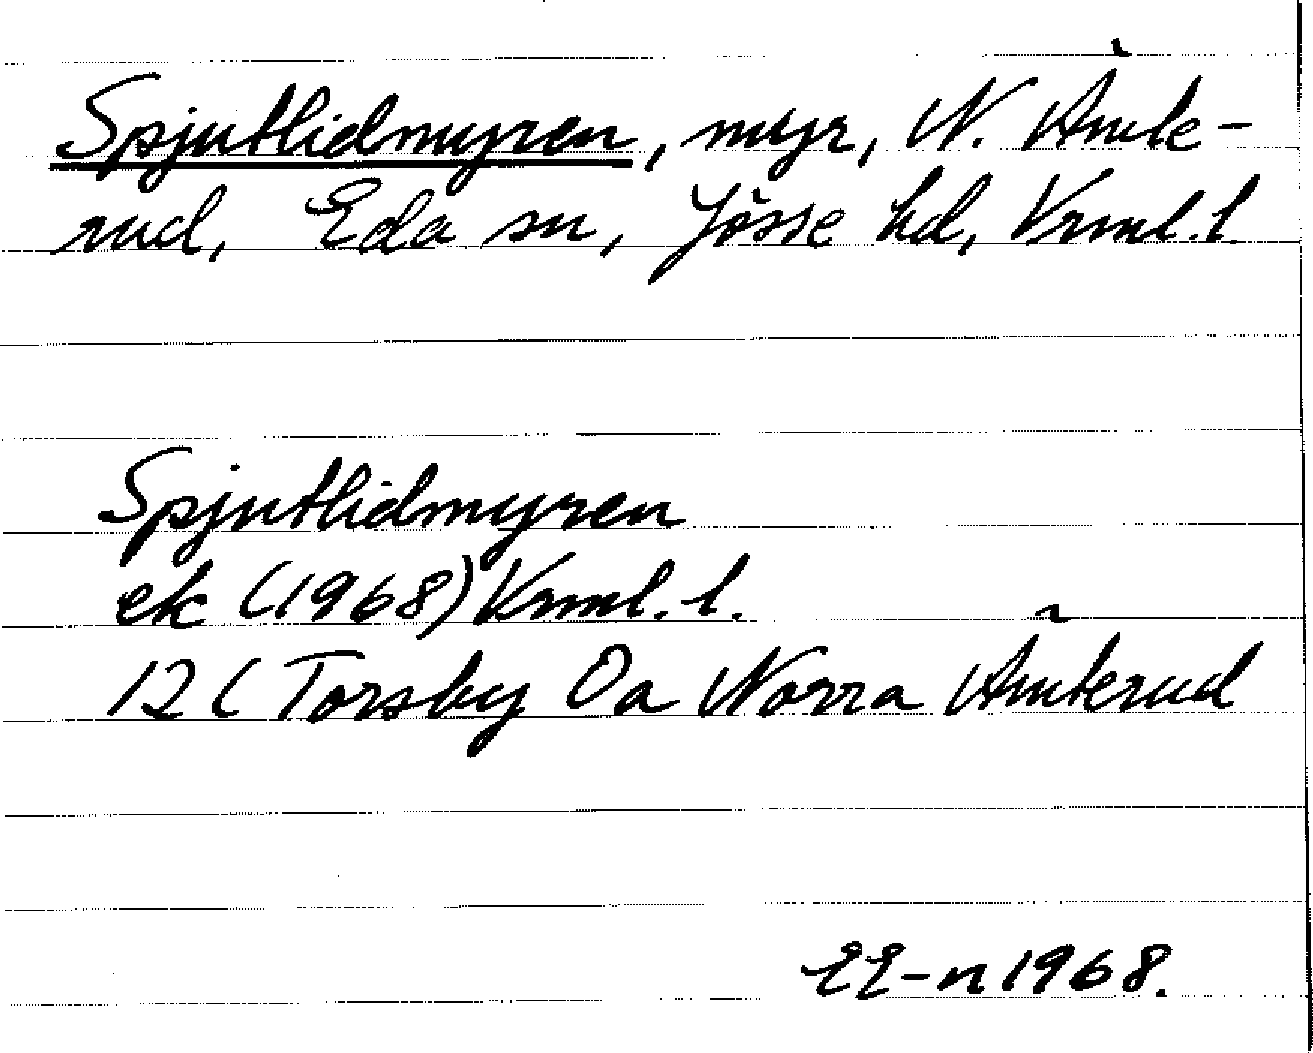 Spjutlidmyren, myr, N. Åmte-
rud, Eda sn, Jösse hd, Vrml. l.
Spjutlidmyren
ek (1968) Vrml. l.
12 C Torsby Oa Norra Åmterud
EE-n 1968.